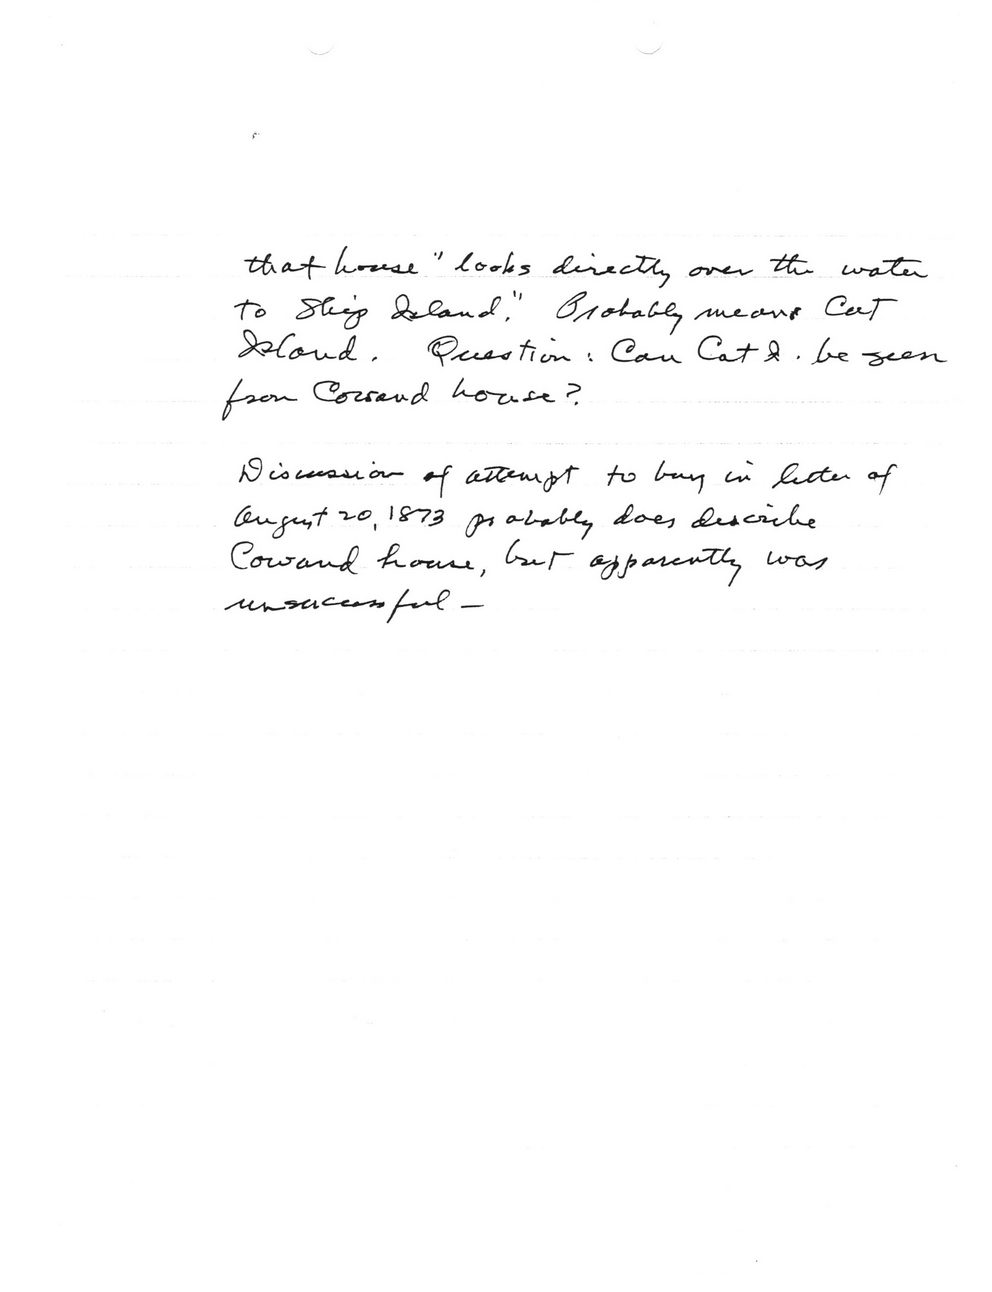 that house "looks directly over the water
to Ship Island." Probably means Cat
Island. Question: Can Cat I. be seen
from Cowand house?
Discussion of attempt to buy in letter of
August 20, 1873 probably does describe
Cowand house, but apparently was
unsuccessful —